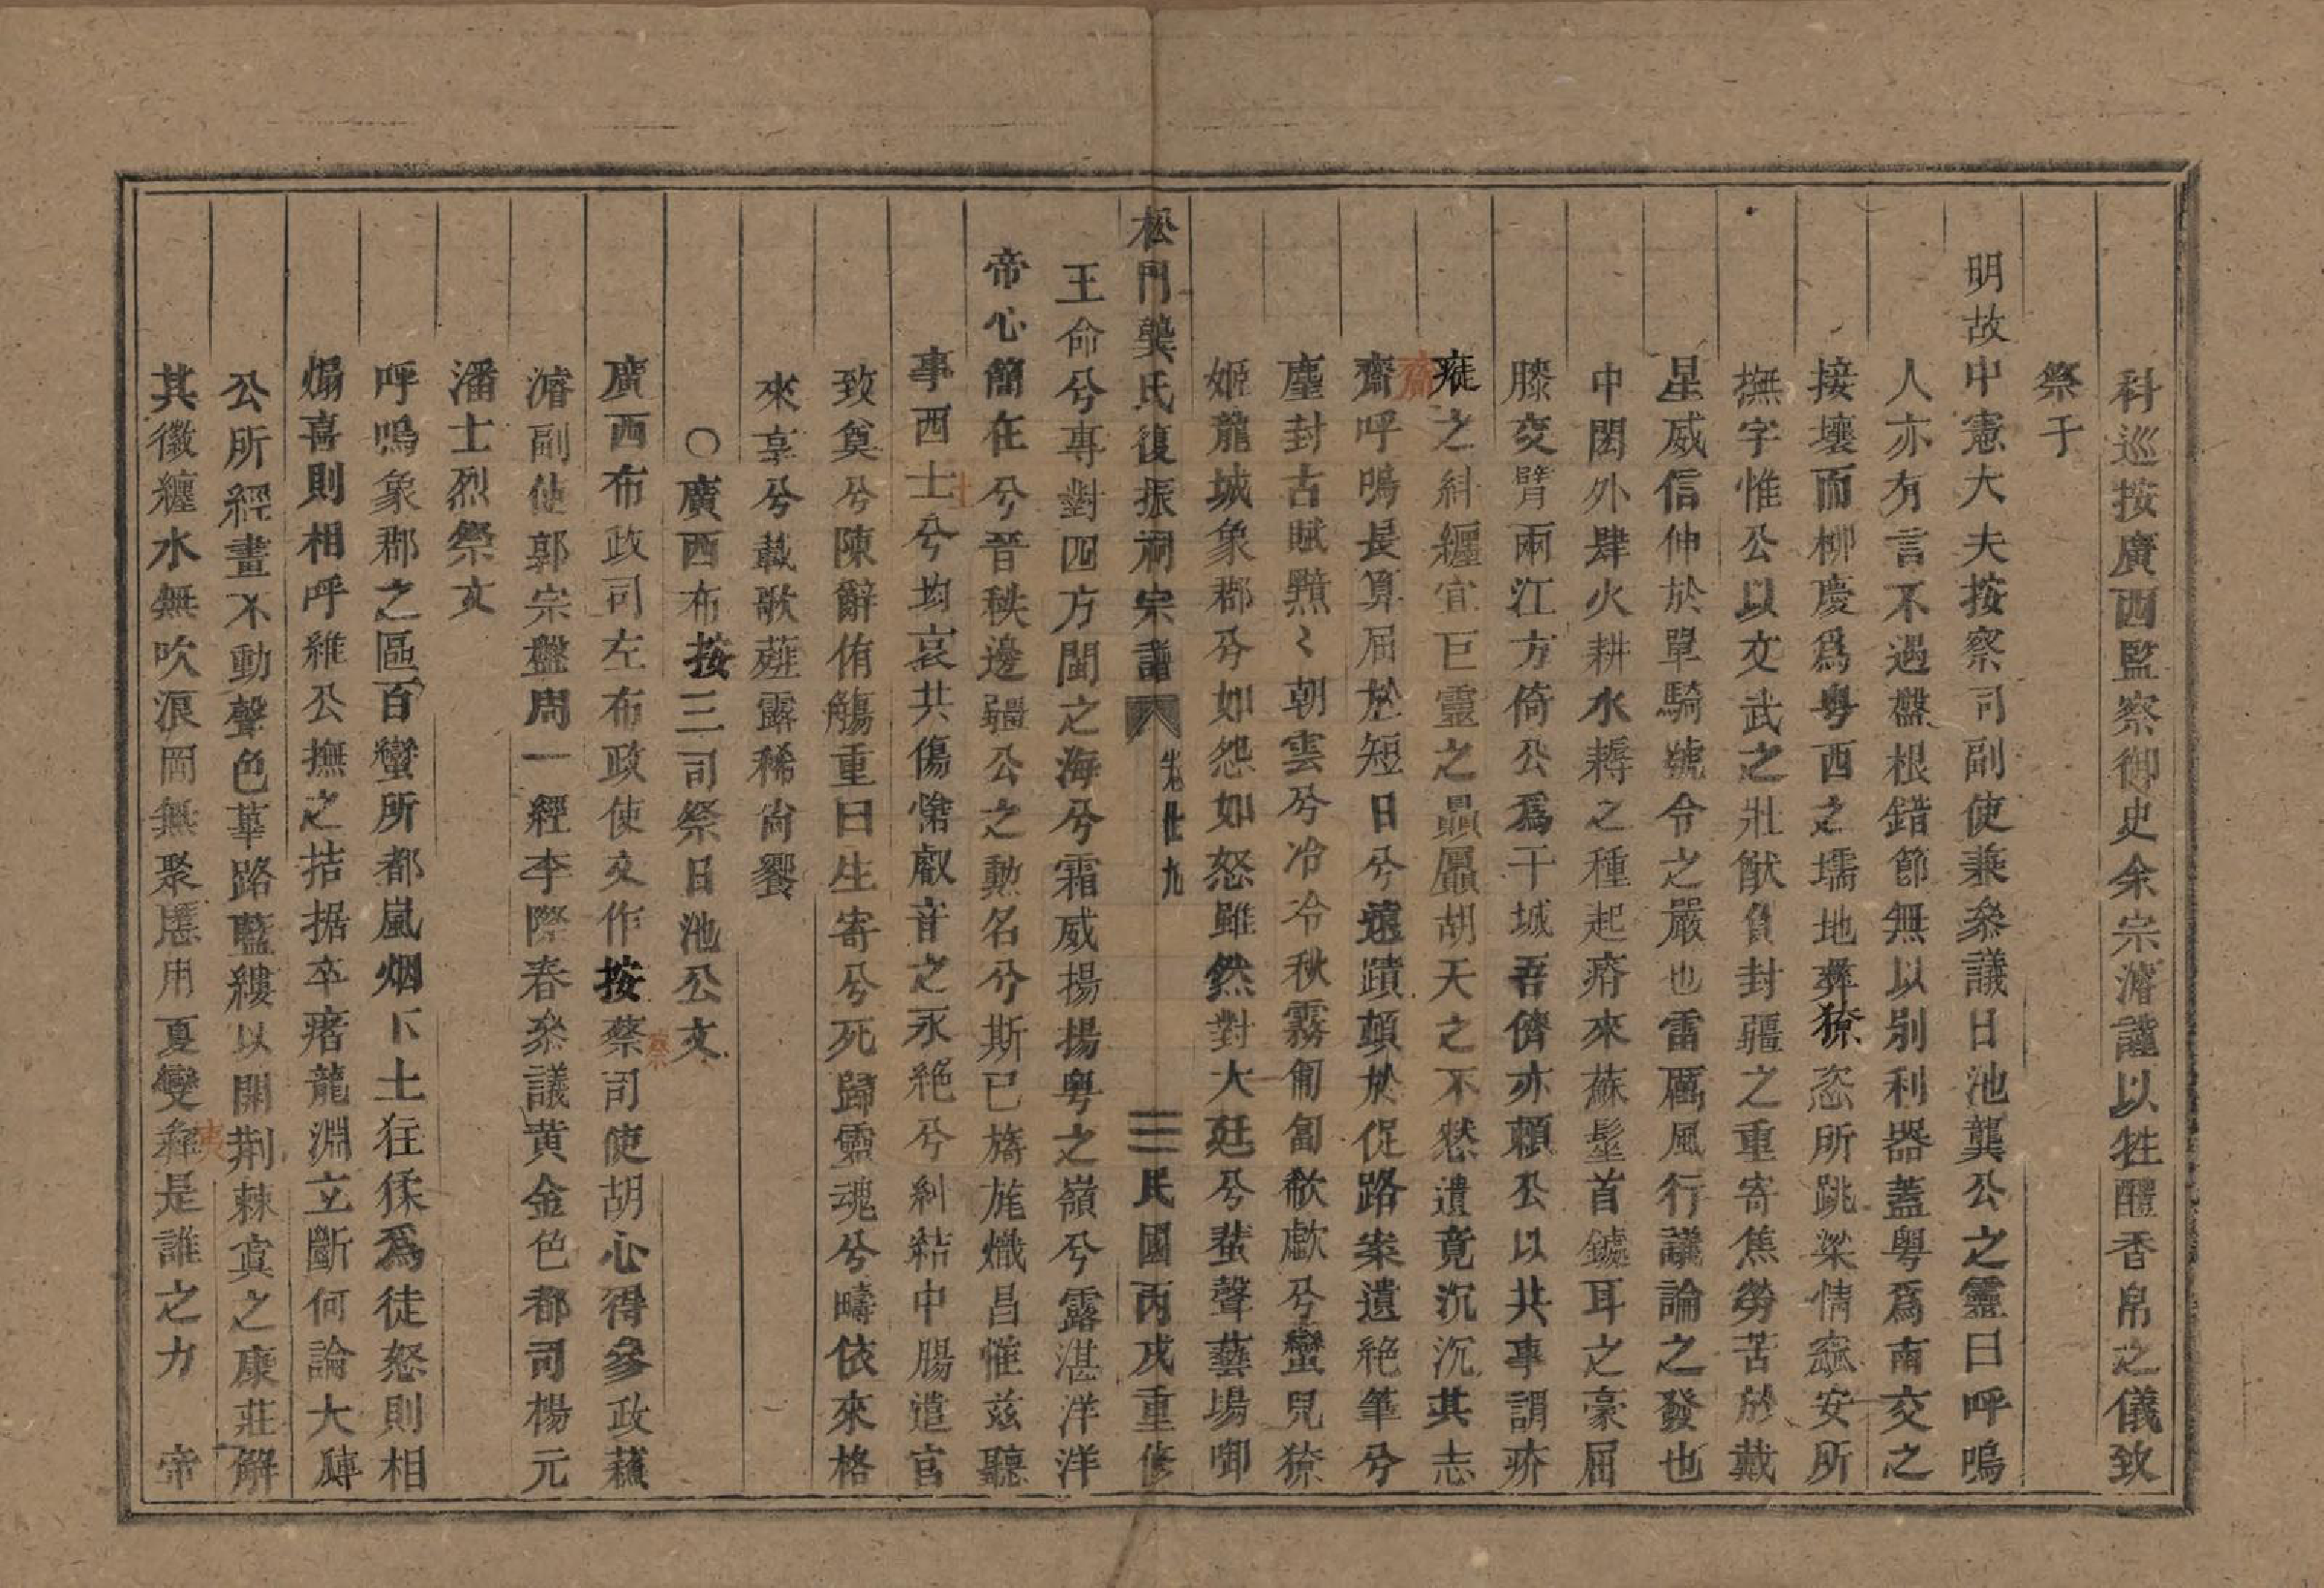 科巡按廣西監察御史余宗濬謹以牲醴香帛之儀致
祭于
明故中憲大夫按察司副使兼叅議日池龔公之靈曰呼嗚
人亦有言不遇盤根錯節無以別利器蓋粵爲南交之
接壤而柳慶爲粵西之壖地彞獠恣所跳梁情窳安所
撫字惟公以文武之壯猷負封疆之重寄焦勞苦於戴
星威信仲於單騎號令之嚴也雷厲風行議論之發也
中閎外肆火耕水耨之種起瘠來蘇髽首鐻耳之豪屈
膝交臂兩江方倚公爲干城吾儕亦賴公以共事謂疥
㾮之糾纒宜巨靈之贔屭胡天之不憖遺竟沉沉其志
齋
齋呼嗚長算屈於短日兮遠蹟頓於促路案遺絶筆兮
塵封古賦黯〻朝雲兮冷冷秋霧匍匐欷歔兮蠻兒獠
姬龍城象郡兮如怨如怒雖然對大廷兮蜚聲藝場啣
松門龔氏復振祠宗譜 卷廿九 民國丙戌重修
王命兮專對四方閩之海兮霜威揚揚粵之嶺兮露湛洋洋
帝心簡在兮晉秩邊疆公之勳名兮斯已旖旎熾昌惟茲聽
事西士兮均哀共傷愴叡音之永絶兮糾結中腸遣官
致奠兮陳辭侑觴重曰生寄兮死歸靈魂兮疇依來格
來享兮載歌薤露稀尙饗
〇廣西布按三司祭日池公文
廣西布政司左布政使文作按蔡司使胡心得參政蘓
察
濬副使郭宗盤周一經李際春叅議黄金色都司楊元
潘士烈祭文
呼嗚象郡之區百蠻所都嵐烟下土狂猱爲徒怒則相
煽喜則相呼維公撫之拮据卒瘏龍淵立斷何論大
公所經畫不動聲色篳路藍縷以開荆棘寘之康莊解
其徽纒水無吹浪岡無聚慝用夏變彞是誰之力 帝
夷